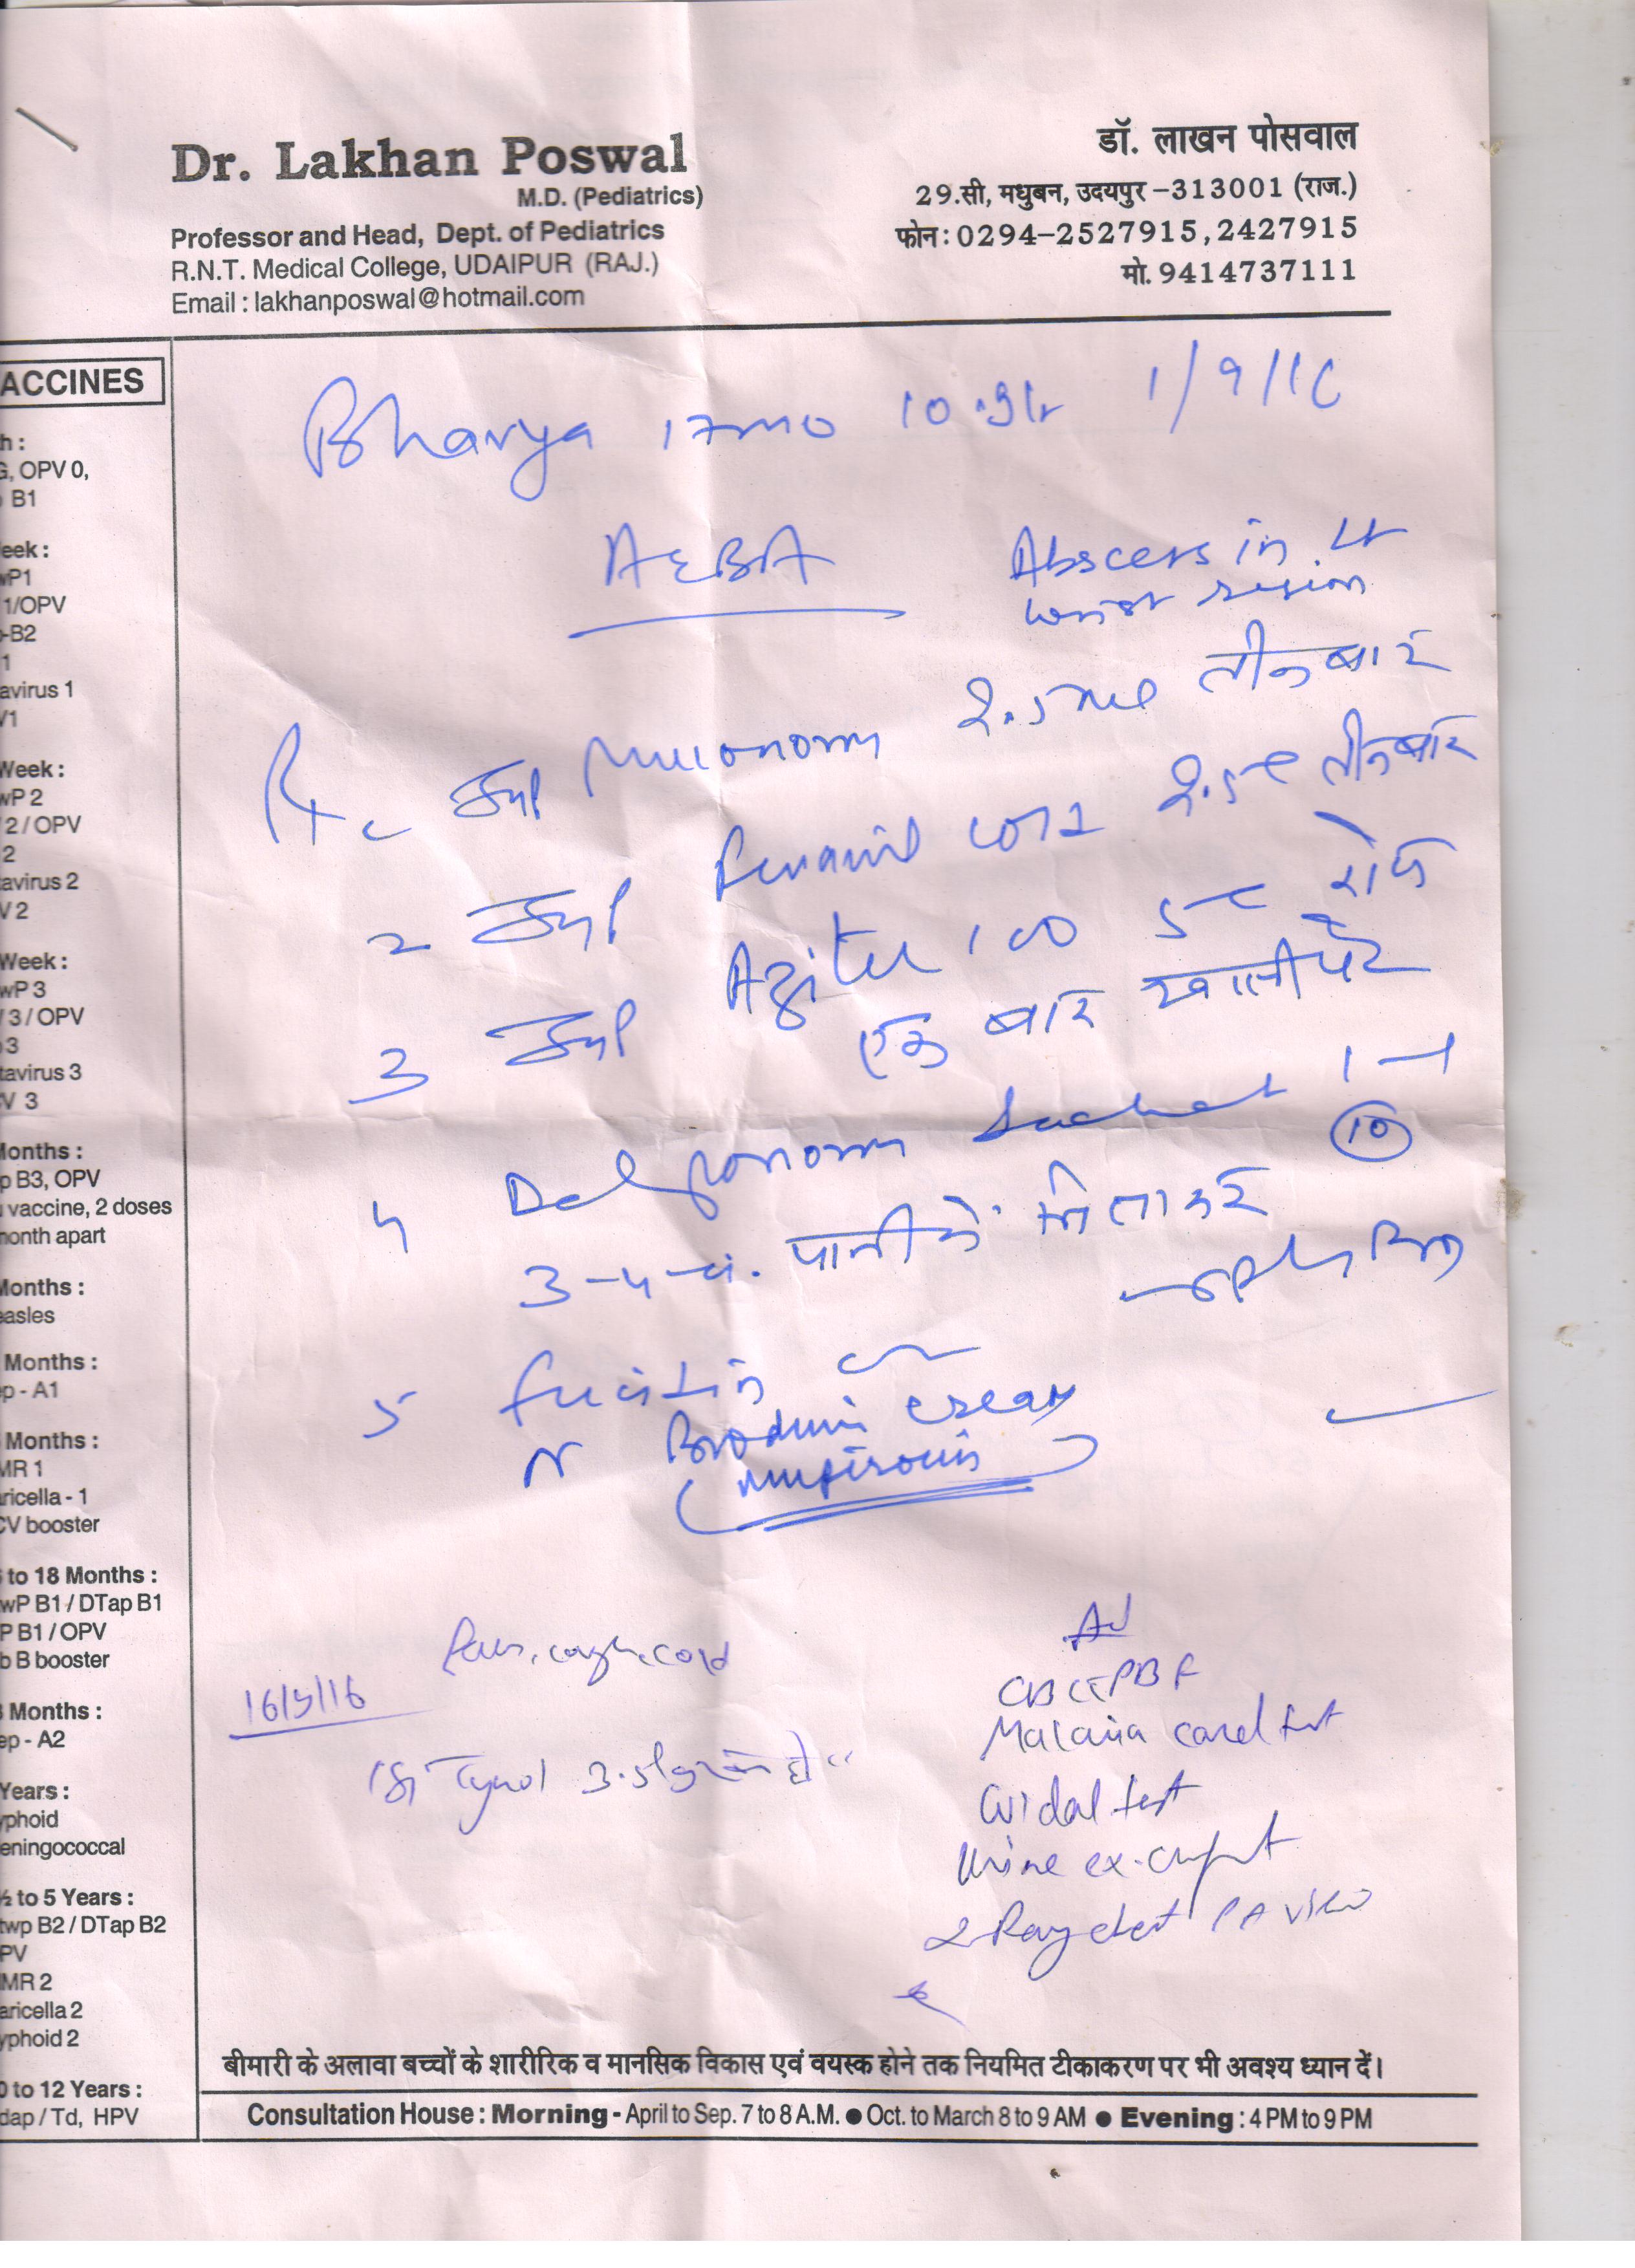 Dr. Lakhan Poswal
M.D. (Pediatrics)
Professor and Head, Dept. of Pediatrics
R.N.T. Medical College, UDAIPUR (RAJ.)
Email : lakhanposwal@hotmail.com
डॉ. लाखन पोसवाल
29.सी, मधुबन, उदयपुर -313001 (राज.)
फोन : 0294-2527915, 2427915
मो. 9414737111
ACCINES
h :
G, OPV 0,
B1
eek :
wP1
1/OPV
-B2
1
avirus 1
V1
Week :
wP 2
2 / OPV
2
avirus 2
V 2
Week :
wP 3
/ 3 / OPV
3
tavirus 3
V 3
Months :
p B3, OPV
vaccine, 2 doses
month apart
Months :
easles
Months :
ep - A1
Months :
MR 1
aricella - 1
CV booster
to 18 Months :
wP B1 / DTap B1
P B1 / OPV
b B booster
Months :
ep - A2
Years :
yphoid
eningococcal
½ to 5 Years :
twp B2 / DTap B2
PV
MR 2
aricella 2
yphoid 2
0 to 12 Years :
dap / Td, HPV
Bhavya 17mo 1/9/16
AEBA
Abscess in Lt
wrist region
Rx
2.5ml तीन बार
2 2.5 तीन बार
3 100 5 रोज
एक बार खाली पेट
4 Sachet 1-1
10
3-4 पानी में मिलाकर
5 Fucidin
cream
(mupirocin)
cough, cold
16/9/16
Adv
CBC PBF
Malaria card test
Widal test
Urine ex-
X Ray chest PA view
बीमारी के अलावा बच्चों के शारीरिक व मानसिक विकास एवं वयस्क होने तक नियमित टीकाकरण पर भी अवश्य ध्यान दें।
Consultation House : Morning - April to Sep. 7 to 8 A.M. ● Oct. to March 8 to 9 AM ● Evening : 4 PM to 9 PM